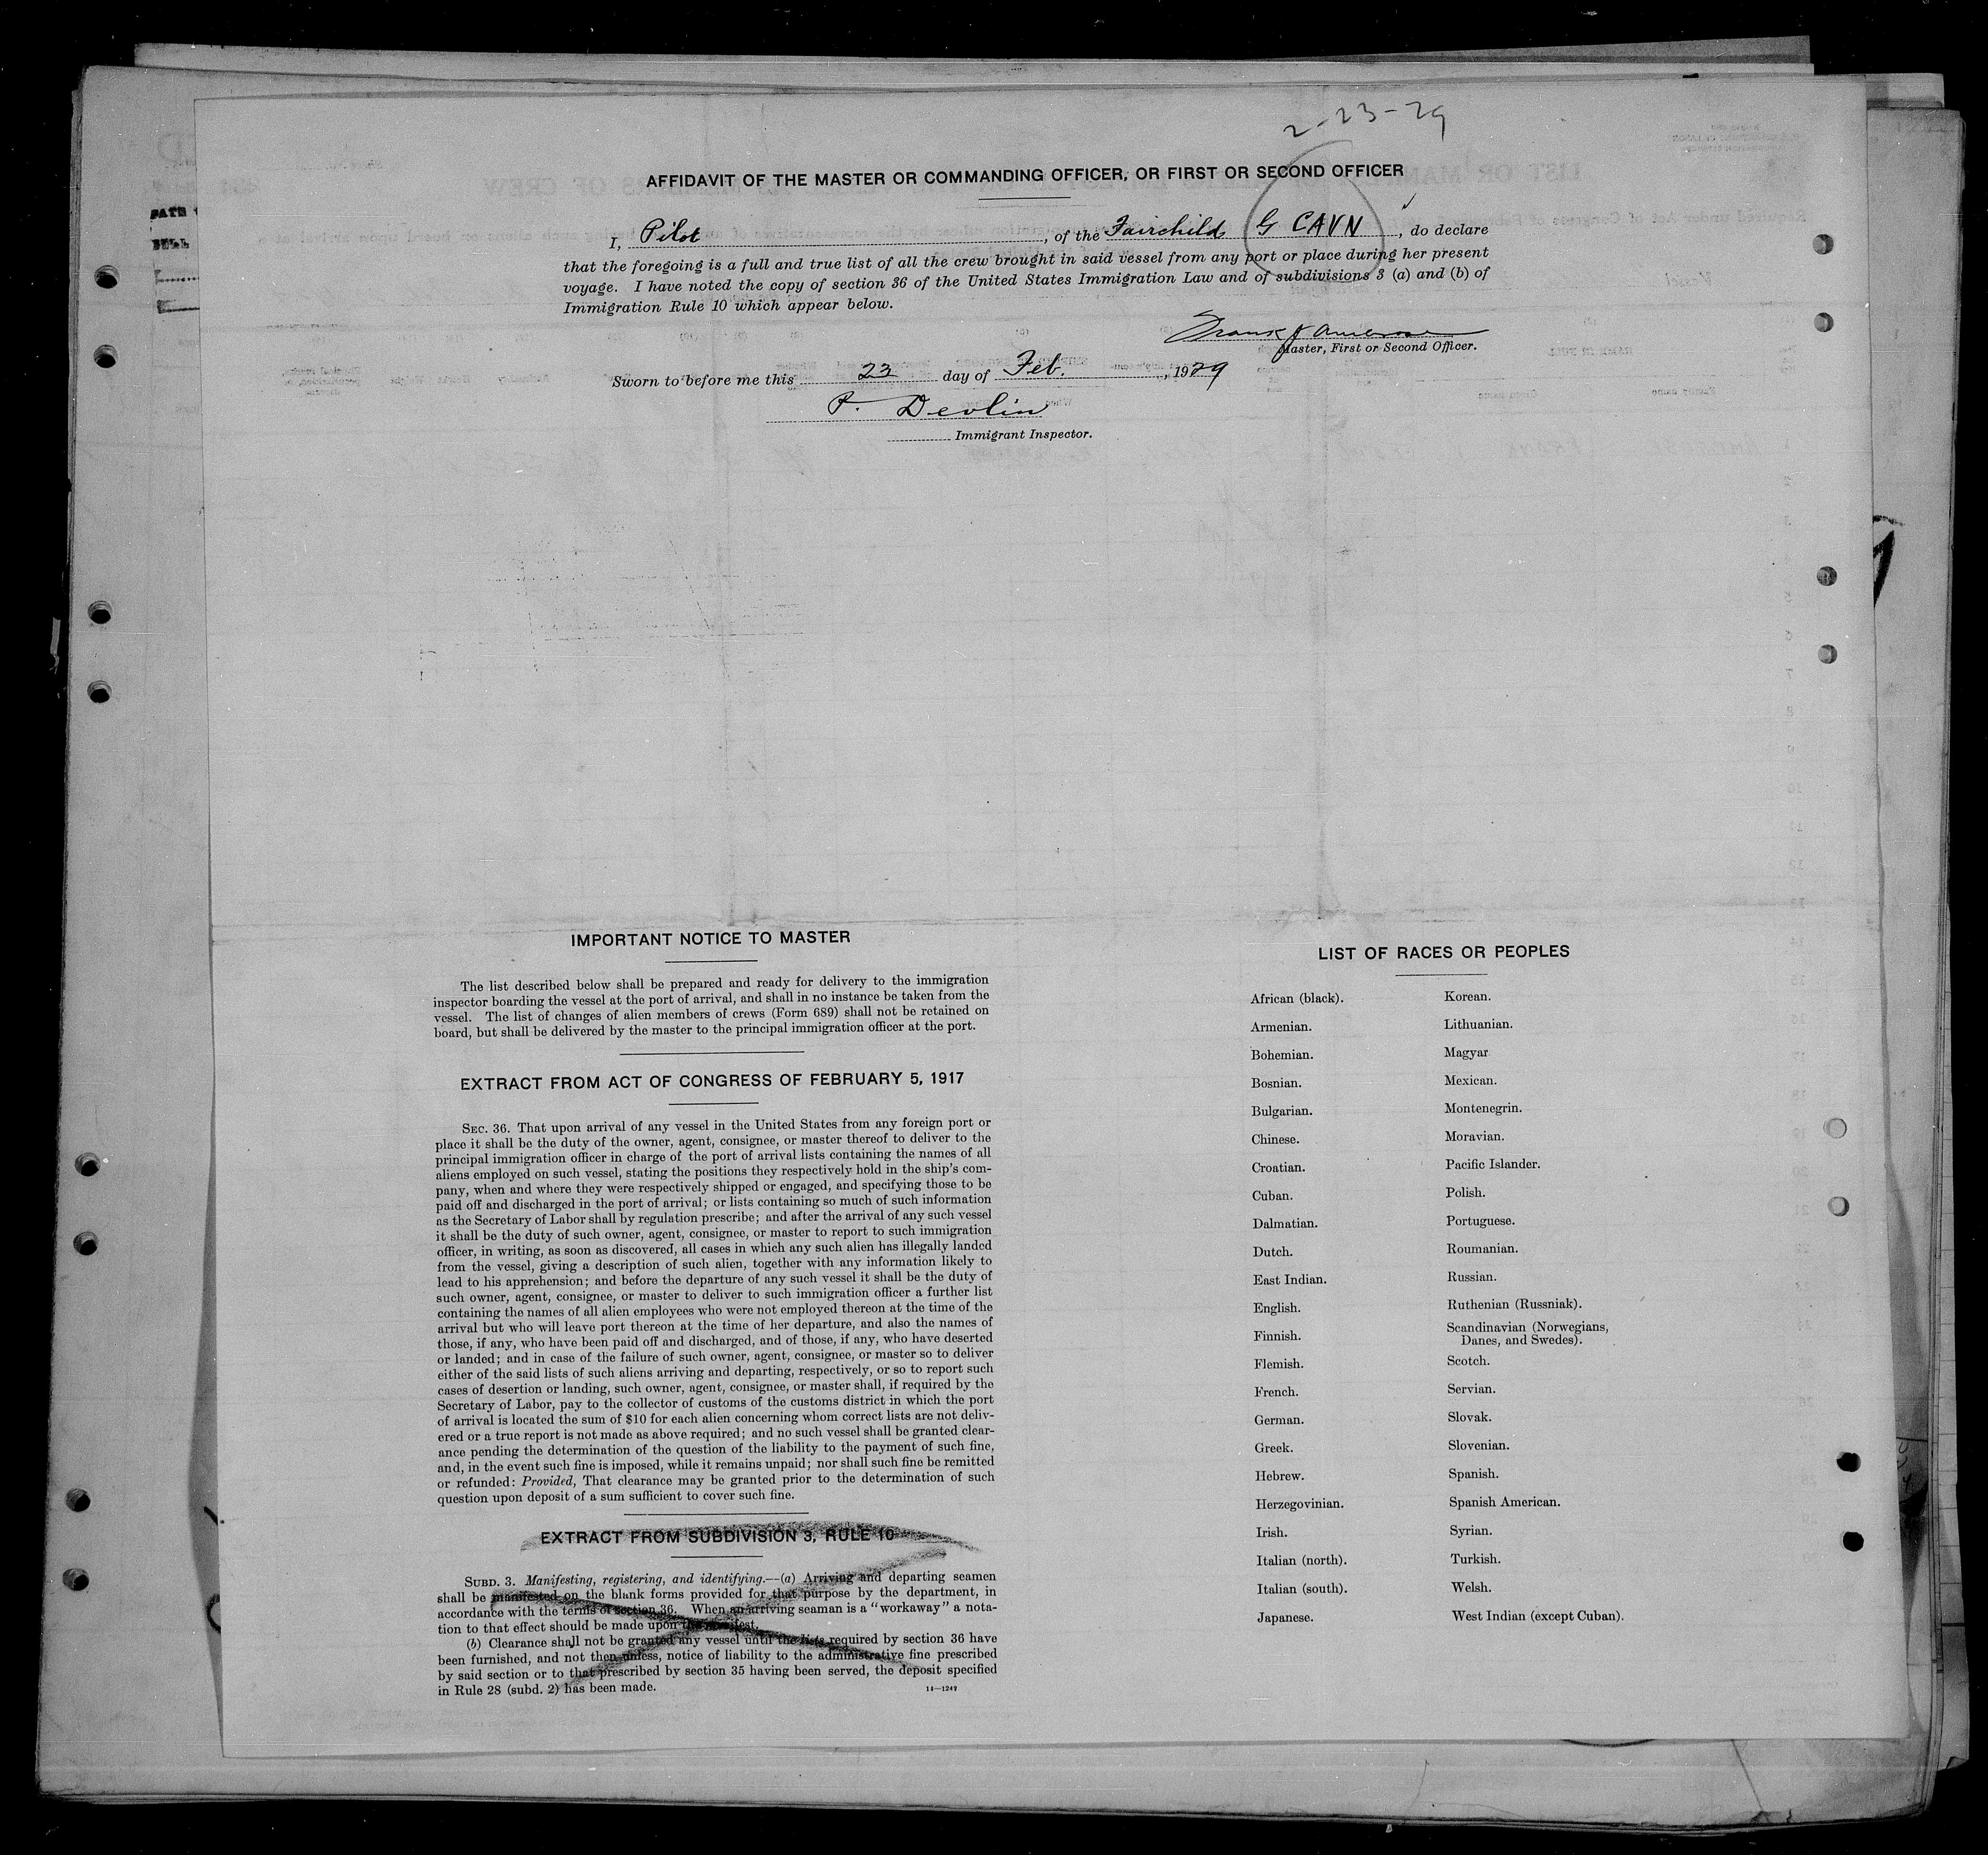 2-23-29
AFFIDAVIT OF THE MASTER OR COMMANDING OFFICER, OR FIRST OR SECOND OFFICER
I, Pilot, of the Fairchild G CAVN, do declare
that the foregoing is a full and true list of all the crew brought in said vessel from any port or place during her present
voyage. I have noted the copy of section 36 of the United States Immigration Law and of subdivisions 3 (a) and (b) of
Immigration Rule 10 which appear below.
Frank J Ambrose
Master, First or Second Officer.
Sworn to before me this 23 day of Feb., 1929
P. Devlin
Immigrant Inspector.
IMPORTANT NOTICE TO MASTER
The list described below shall be prepared and ready for delivery to the immigration
inspector boarding the vessel at the port of arrival, and shall in no instance be taken from the
vessel. The list of changes of alien members of crews (Form 689) shall not be retained on
board, but shall be delivered by the master to the principal immigration officer at the port.
EXTRACT FROM ACT OF CONGRESS OF FEBRUARY 5, 1917
SEC. 36. That upon arrival of any vessel in the United States from any foreign port or
place it shall be the duty of the owner, agent, consignee, or master thereof to deliver to the
principal immigration officer in charge of the port of arrival lists containing the names of all
aliens employed on such vessel, stating the positions they respectively hold in the ship's com-
pany, when and where they were respectively shipped or engaged, and specifying those to be
paid off and discharged in the port of arrival; or lists containing so much of such information
as the Secretary of Labor shall by regulation prescribe; and after the arrival of any such vessel
it shall be the duty of such owner, agent, consignee, or master to report to such immigration
officer, in writing, as soon as discovered, all cases in which any such alien has illegally landed
from the vessel, giving a description of such alien, together with any information likely to
lead to his apprehension; and before the departure of any such vessel it shall be the duty of
such owner, agent, consignee, or master to deliver to such immigration officer a further list
containing the names of all alien employees who were not employed thereon at the time of the
arrival but who will leave port thereon at the time of her departure, and also the names of
those, if any, who have been paid off and discharged, and of those, if any, who have deserted
or landed; and in case of the failure of such owner, agent, consignee, or master so to deliver
either of the said lists of such aliens arriving and departing, respectively, or so to report such
cases of desertion or landing, such owner, agent, consignee, or master shall, if required by the
Secretary of Labor, pay to the collector of customs of the customs district in which the port
of arrival is located the sum of $10 for each alien concerning whom correct lists are not deliv-
ered or a true report is not made as above required; and no such vessel shall be granted clear-
ance pending the determination of the question of the liability to the payment of such fine,
and, in the event such fine is imposed, while it remains unpaid; nor shall such fine be remitted
or refunded: Provided, That clearance may be granted prior to the determination of such
question upon deposit of a sum sufficient to cover such fine.
EXTRACT FROM SUBDIVISION 3, RULE 10
SUBD. 3. Manifesting, registering, and identifying.—(a) Arriving and departing seamen
shall be manifested on the blank forms provided for that purpose by the department, in
accordance with the terms of section 36. When an arriving seaman is a "workaway" a nota-
tion to that effect should be made upon the manifest.
(b) Clearance shall not be granted any vessel until the lists required by section 36 have
been furnished, and not then unless, notice of liability to the administrative fine prescribed
by said section or to that prescribed by section 35 having been served, the deposit specified
in Rule 28 (subd. 2) has been made.
14—1249
LIST OF RACES OR PEOPLES
African (black). Korean.
Armenian. Lithuanian.
Bohemian. Magyar
Bosnian. Mexican.
Bulgarian. Montenegrin.
Chinese. Moravian.
Croatian. Pacific Islander.
Cuban. Polish.
Dalmatian. Portuguese.
Dutch. Roumanian.
East Indian. Russian.
English. Ruthenian (Russniak).
Finnish. Scandinavian (Norwegians,
Danes, and Swedes).
Flemish. Scotch.
French. Servian.
German. Slovak.
Greek. Slovenian.
Hebrew. Spanish.
Herzegovinian. Spanish American.
Irish. Syrian.
Italian (north). Turkish.
Italian (south). Welsh.
Japanese. West Indian (except Cuban).